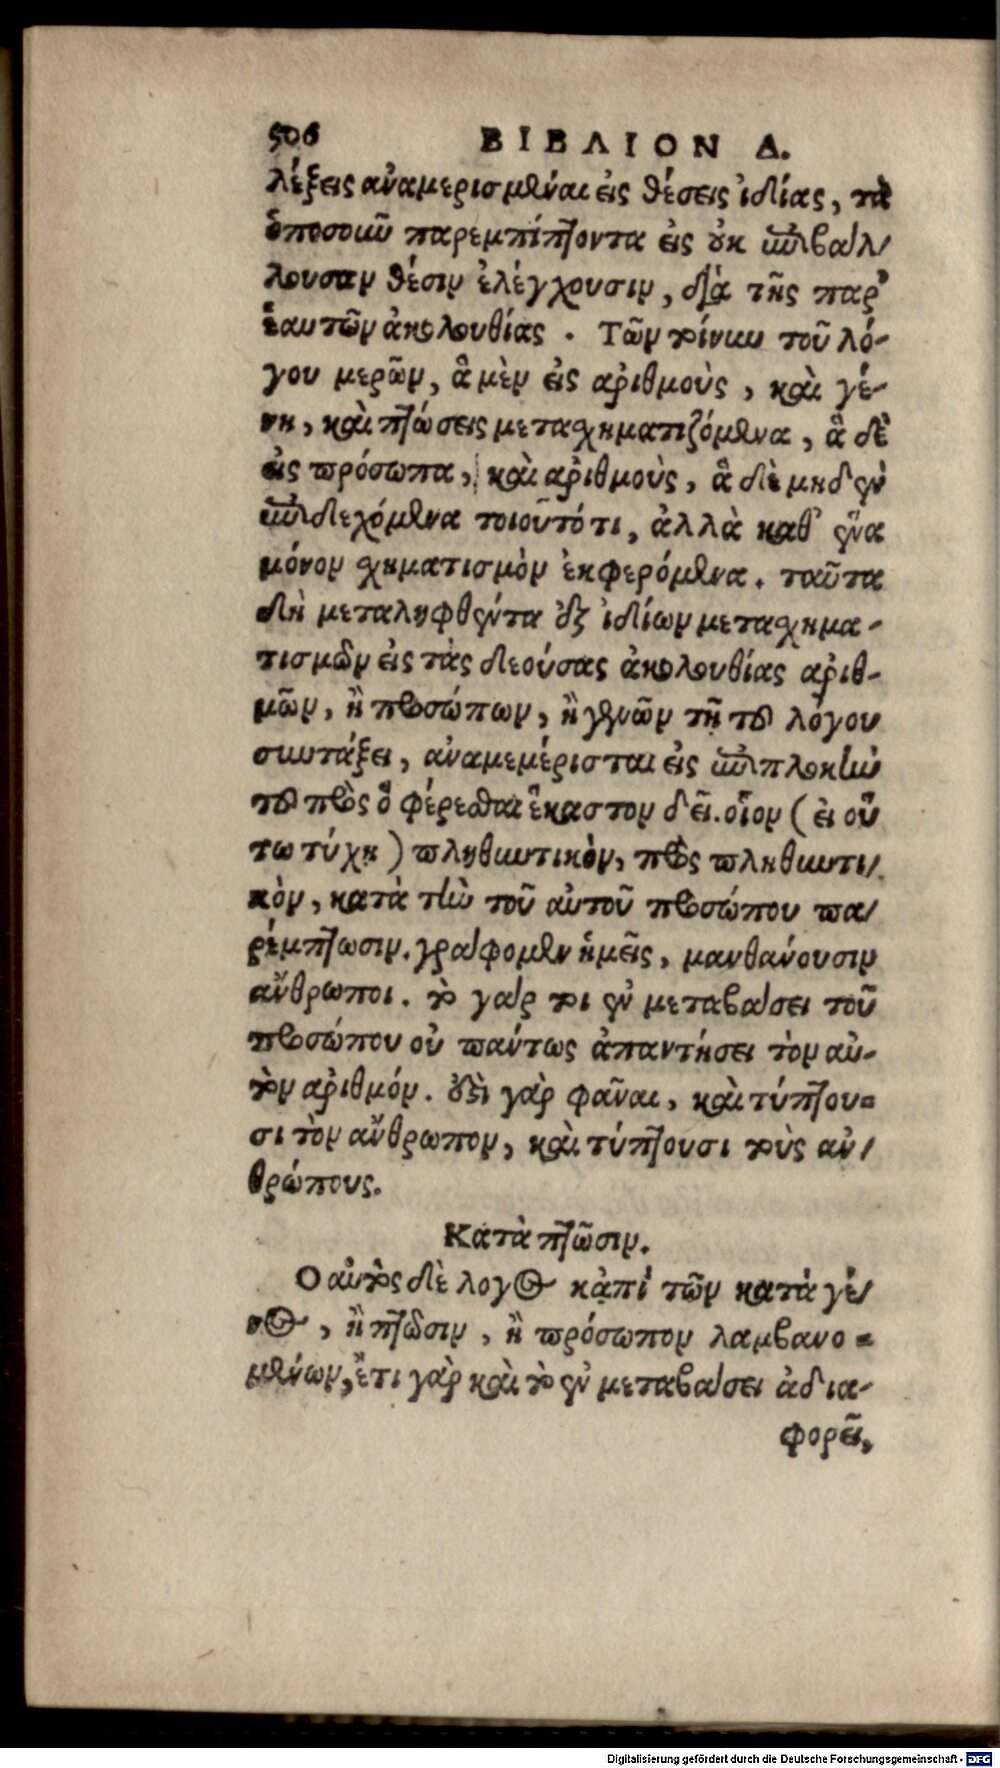 506 ΒΙΒΛΙΟΝ Δ.
λέξεις ἀναμερισμέναι εἰς θέσεις ἰδίας, τὰ
ὁποσοιοῦν παρεμπίπτοντα εἰς οὐκ ἐπιβάλ/
λουσαν θέσιν ἐλέγχουσιν, διὰ τῆς παρ'
ἑαυτῶν ἀκολουθίας . Τῶν τοίνυν τοῦ λό-
γου μερῶν, ἃ μὲν εἰς ἀριθμοὺς , καὶ γέ-
νη, καὶ πτώσεις μετασχηματιζόμενα, ἃ δὲ
εἰς πρόσωπα, καὶ ἀριθμοὺς, ἃ δὲ μηδὲν
ἐπιδεχόμενα τοιοῦτό τι, ἀλλὰ καθ' ἕνα
μόνον σχηματισμὸν ἐκφερόμενα. ταῦτα
δὴ μεταληφθέντα ἐξ ἰδίων μετασχημα-
τισμῶν εἰς τὰς δεούσας ἀκολουθίας ἀριθ-
μῶν, ἢ προσώπων, ἢ γενῶν τῇ τοῦ λόγου
συντάξει, ἀναμεμέρισται εἰς ἐπιπλοκὴν
τοῦ πρὸς ὃ φέρεσθαι ἕκαστον δεῖ. οἷον (εἰ οὕ
τω τύχη) πληθυντικὸν, πρὸς πληθυντι/
κὸν, κατὰ τὴν τοῦ αὐτοῦ προσώπου πα/
ρέμπτωσιν. γράφομεν ἡμεῖς, μανθάνουσιν
ἄνθρωποι. τὸ γάρ τοι ἐν μεταβάσει τοῦ
προσώπου οὐ πάντως ἀπαντήσει τὸν αὐ-
τὸν ἀριθμόν. ἔστι γὰρ φᾶναι, καὶ τύπτου=
σι τὸν ἄνθρωπον, καὶ τύπτουσι τοὺς ἀν/
θρώπους.
Κατὰ πτῶσιν.
Ο αὐτὸς δὲ λόγος κἀπὶ τῶν κατὰ γέ/
νος, ἢ πτῶσιν , ἢ πρόσωπον λαμβανο=
μένων, ἔτι γὰρ καὶ τὸ ἐν μεταβάσει ἀδια-
φορεῖ,
Digitalisierung gefördert durch die Deutsche Forschungsgemeinschaft - DFG